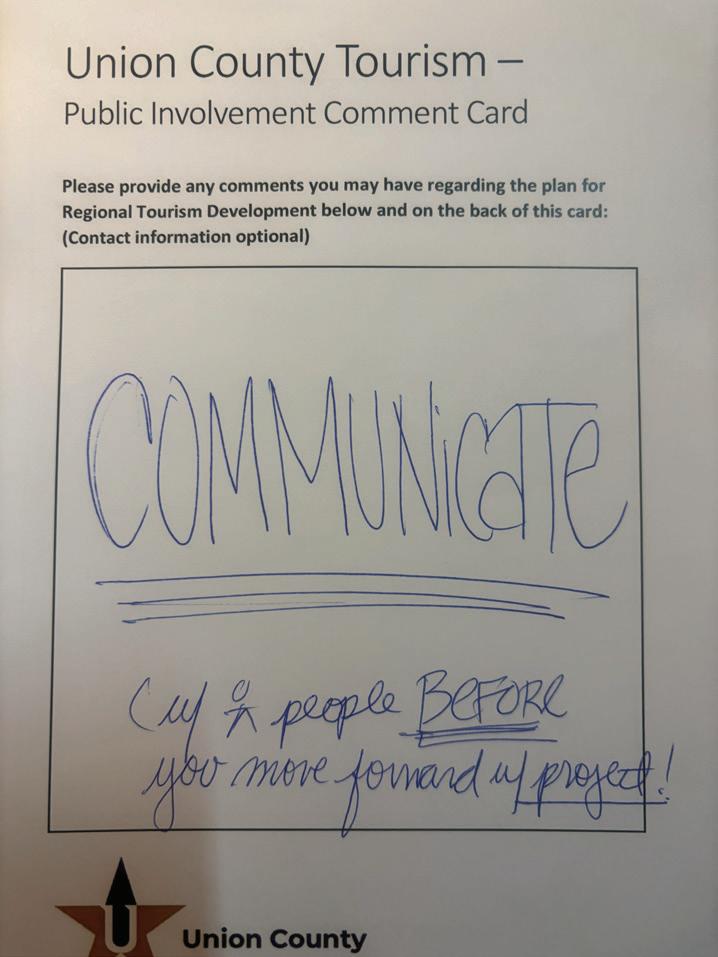 Union County Tourism –
Public Involvement Comment Card
Please provide any comments you may have regarding the plan for
Regional Tourism Development below and on the back of this card:
(Contact information optional)
COMMUNicaTe
(w/ people BeFORe
you move forward w/ project!
U
Union County